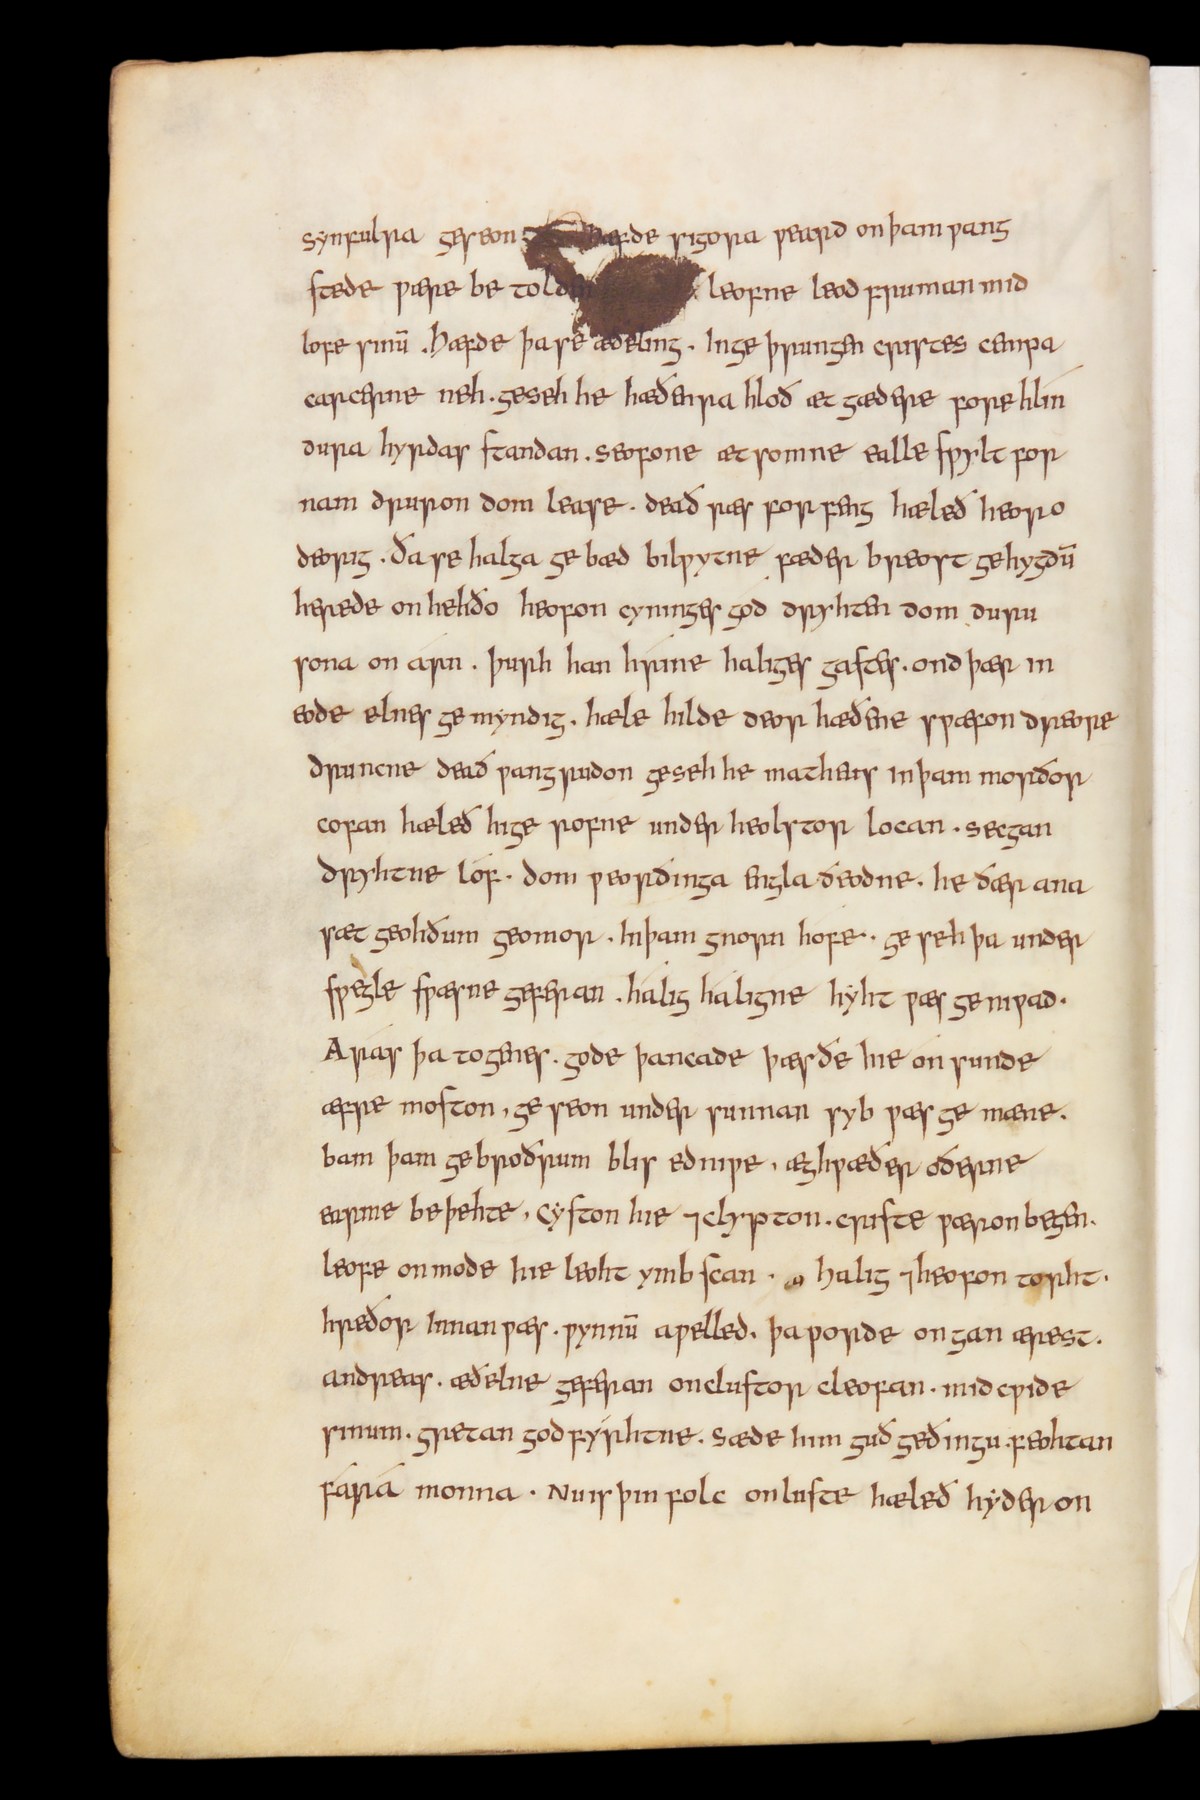 synfulra geseon hæfde sigora ƿeard on þam ƿang
stede ƿære be tolden leofne leod fruman mid
lofe sinū . Hæfde þa se æðeling . Inge þrungen cristes cempa
carcerne neh . geseh he hæðenra hloð æt gædere fore hlin
dura hyrdas standan . seofone æt somne ealle sƿylt for
nam druron dom lease . deað ræs for feng hæleð heoro
deorig . ða se halga ge bæd bilƿytne fæder breost gehygdū
herede on hehðo heofon cyninges gód dryhten dom duru
sona on árn . þurh han hrine haliges gastes . ond þær in
eode elnes ge myndig . hæle hilde deor hæðene sƿæfon dreore
druncne deað ƿang rudon geseh he matheus in þam morðor
cofan hæleð hige rofne under heolstor locan . secgan
dryhtne lóf . dom ƿeorðinga engla ðeodne . he ðær ana
sæt geohðum geomor . In þam gnorn hofe . ge seh þa under
sƿegle sƿæsne geferan . hálig háligne hyht ƿæs ge niƿad .
Arás þa togenes . gode þancade þæs ðe hie ón sunde
æfre moston , ge seon under sunnan syb ƿæs ge mæne .
bam þam ge broðrum blis edniƿe , æghƿæðer óðerne
earme be þehte , cyston hie ⁊ clypton . criste ƿæron begen .
leofe on mode hie leoht ymb scan . halig ⁊ heofon torht .
hreðor Innan ƿæs . ƿynnū aƿelled . þa ƿorde ongan ærest .
andreas . æðelne geferan on clustor cleofan . mid cƿide
sinum . gretan god fyrhtne . sæde him guð geðingu . feohtan
fára monna . Nu is þin folc on luste hæleð hyder on